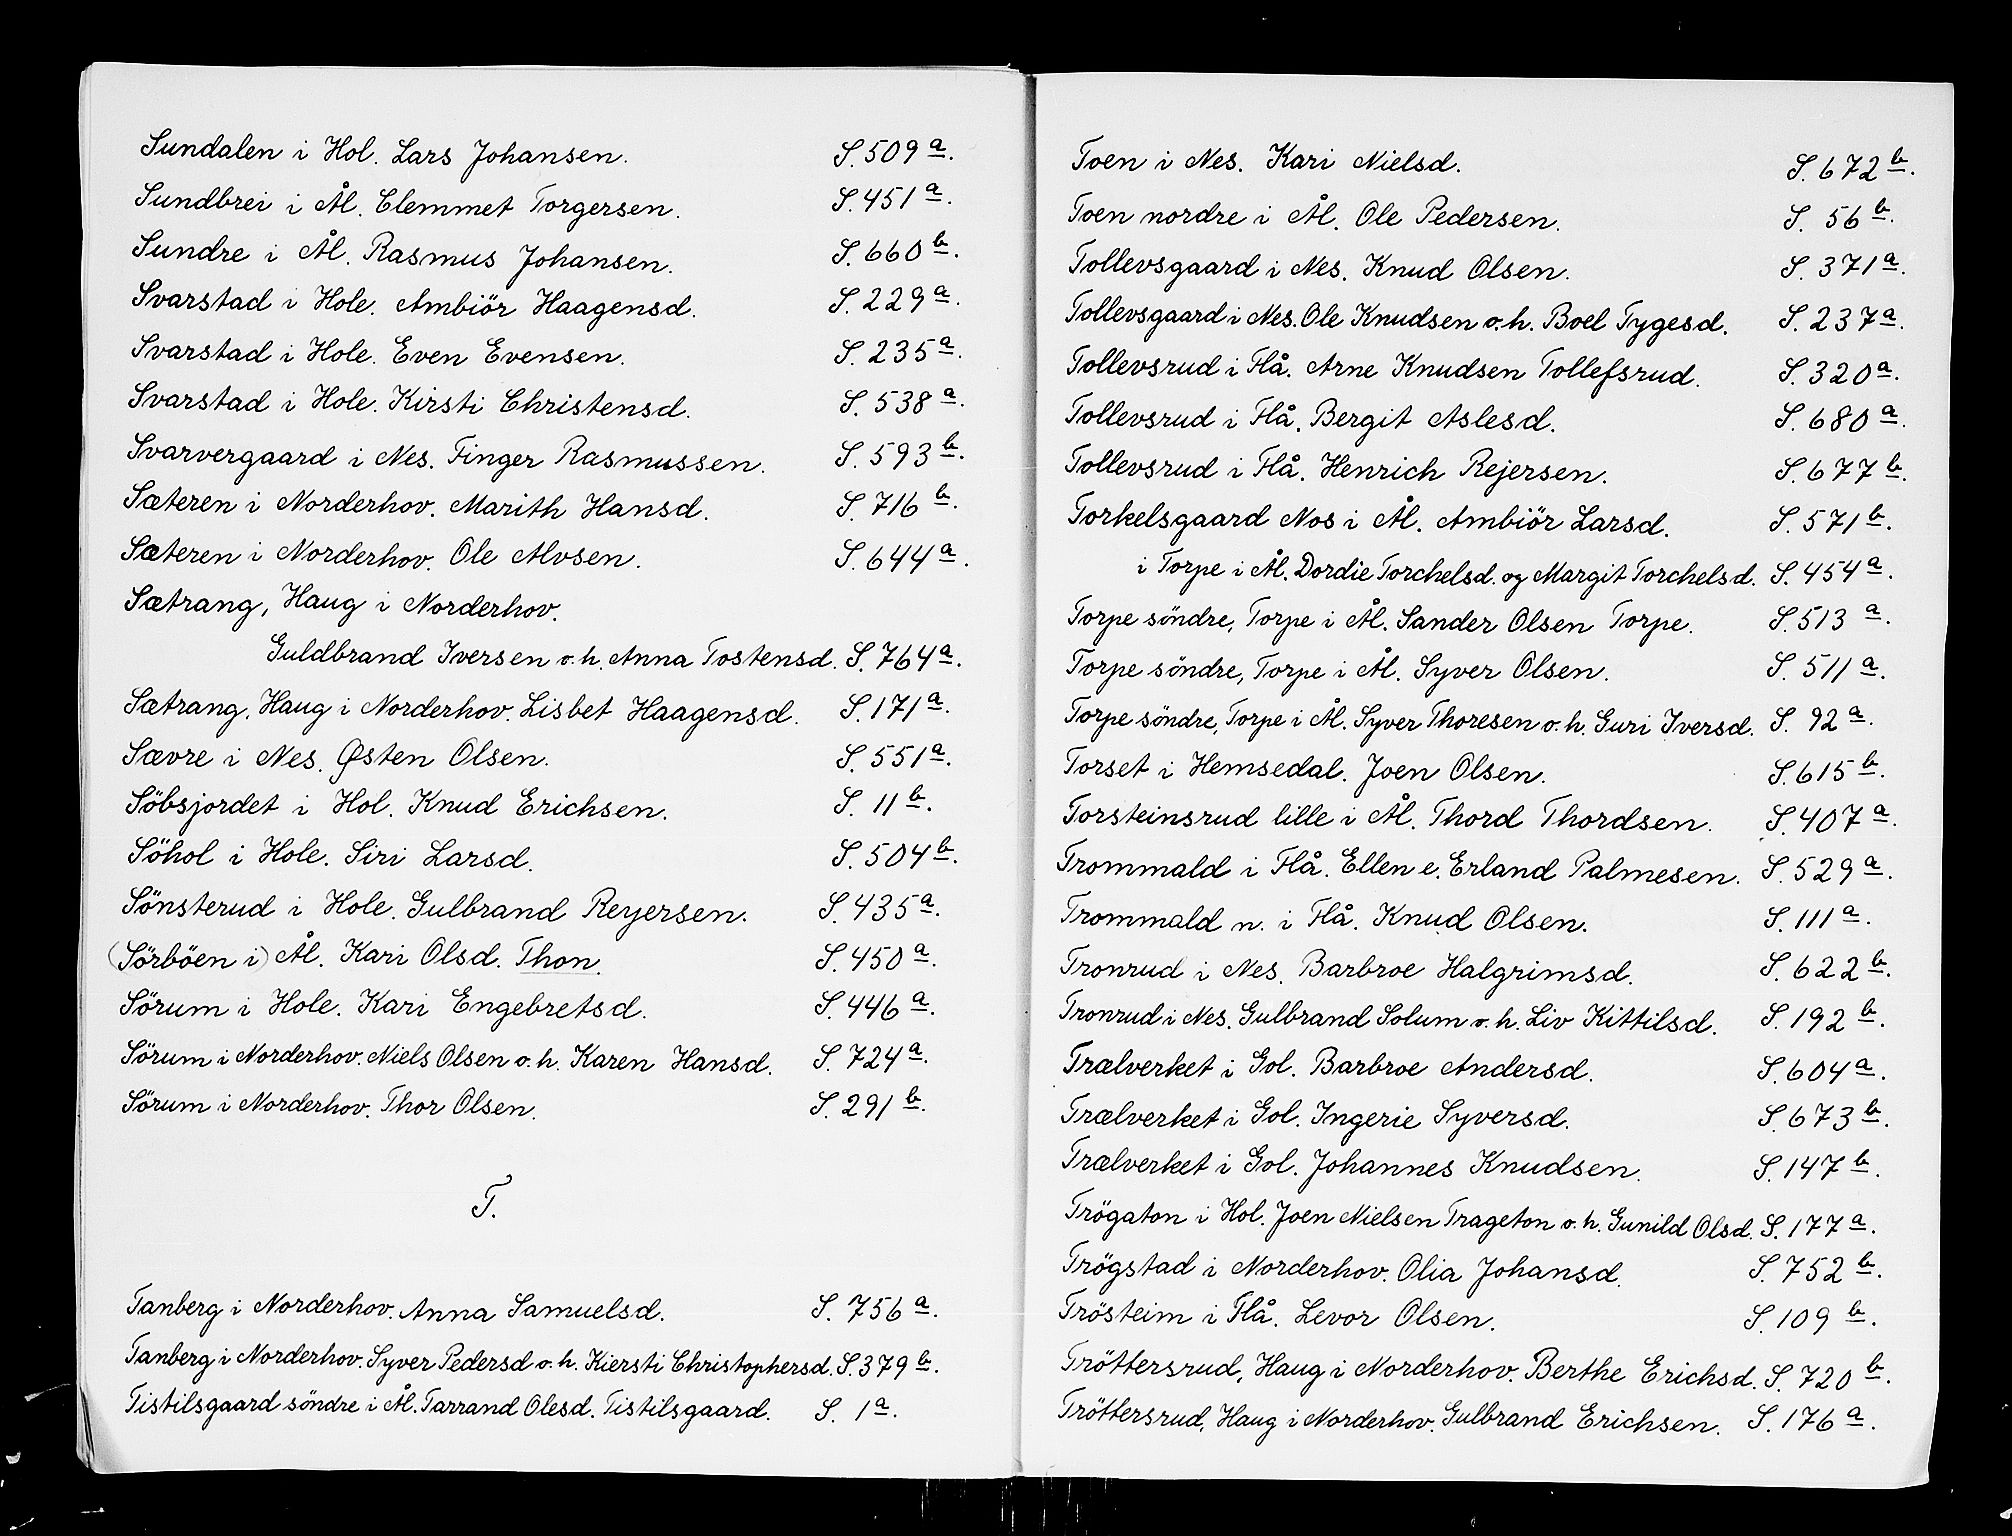 Sundalen i Hol. Lars Johansen. S. 509 a.
Sundbrei i Ål. Clemmet Torgersen. S. 451 a.
Sundre i Ål. Rasmus Johansen. S. 660 b.
Svarstad i Hole. Ambiör Haagensd. S. 229 a.
Svarstad i Hole. Even Evensen. S. 235 a.
Svarstad i Hole. Kirsti Christensd. S. 538 a.
Svarvergaard i Nes. Finger Rasmussen. S. 593 b.
Sæteren i Norderhov. Marith Hansd. S. 716 b.
Sæteren i Norderhov. Ole Alvsen. S. 644 a.
Sætrang, Haug i Norderhov.
Guldbrand Iversen o.h. Anna Tostensd. S. 764 a.
Sætrang, Haug i Norderhov. Lisbet Haagensd. S. 171 a.
Sævre i Nes. Østen Olsen. S. 551 a.
Söbsjordet i Hol. Knud Erichsen. S. 11 b.
Söhol i Hole. Siri Larsd. S. 504 b.
Sönsterud i Hole. Gulbrand Reyersen. S. 435 a.
(Sörböen i) Ål. Kari Olsd. Thon. S. 450 a.
Sörum i Hole. Kari Engebretsd. S. 446 a.
Sörum i Norderhov. Niels Olsen o.h. Karen Hansd. S. 724 a.
Sörum i Norderhov. Thor Olsen. S. 291 b.
T.
Tanberg i Norderhov. Anna Samuelsd. S. 756 a.
Tanberg i Norderhov. Syver Pedersd o.h. Kiersti Christophersd. S. 379 b.
Tistilsgaard söndre i Ål. Tarrand Olesd. Tistilsgaard. S. 1 a.
Toen i Nes. Kari Nielsd. S. 672 b.
Toen nordre i Ål. Ole Pedersen. S. 56 b.
Tollevsgaard i Nes. Knud Olsen. S. 371 a.
Tollevsgaard i Nes. Ole Knudsen o.h. Boel Tygesd. S. 237 a.
Tollevsrud i Flå. Arne Knudsen Tollefsrud. S. 320 a.
Tollevsrud i Flå. Bergit Aslesd. S. 680 a.
Tollevsrud i Flå. Henrich Rejersen. S. 677 b.
Torkelsgaard Nos i Ål. Ambiör Larsd. S. 571 b.
i Torpe i Ål. Dordie Torchelsd. og Margit Torchelsd. S. 454 a.
Torpe söndre, Torpe i Ål. Sander Olsen Torpe. S. 513 a.
Torpe söndre, Torpe i Ål. Syver Olsen. S. 511 a.
Torpe söndre, Torpe i Ål. Syver Thoresen o.h. Guri Iversd. S. 92 a.
Torset i Hemsedal. Joen Olsen. S. 615 b.
Torsteinsrud lille i Ål. Thord Thordsen. S. 407 a.
Trommald i Flå. Ellen e. Erland Palmesen. S. 529 a.
Trommald n. i Flå. Knud Olsen. S. 111 a.
Tronrud i Nes. Barbroe Halgrimsd. S. 622 b.
Tronrud i Nes. Gulbrand Solum o.h. Liv Kittilsd. S. 192 b.
Trælverket i Gol. Barbroe Andersd. S. 604 a.
Trælverket i Gol. Ingerie Syversd. S. 673 b.
Trælverket i Gol. Johannes Knudsen. S. 147 b.
Trögaton i Hol. Joen Nielsen Trageton o.h. Gunild Olsd. S. 177 a.
Trögstad i Norderhov. Olia Johansd. S. 752 b.
Trösteim i Flå. Levor Olsen. S. 109 b.
Tröttersrud, Haug i Norderhov. Berthe Erichsd. S. 720 b.
Tröttersrud, Haug i Norderhov. Gulbrand Erichsen. S. 176 a.